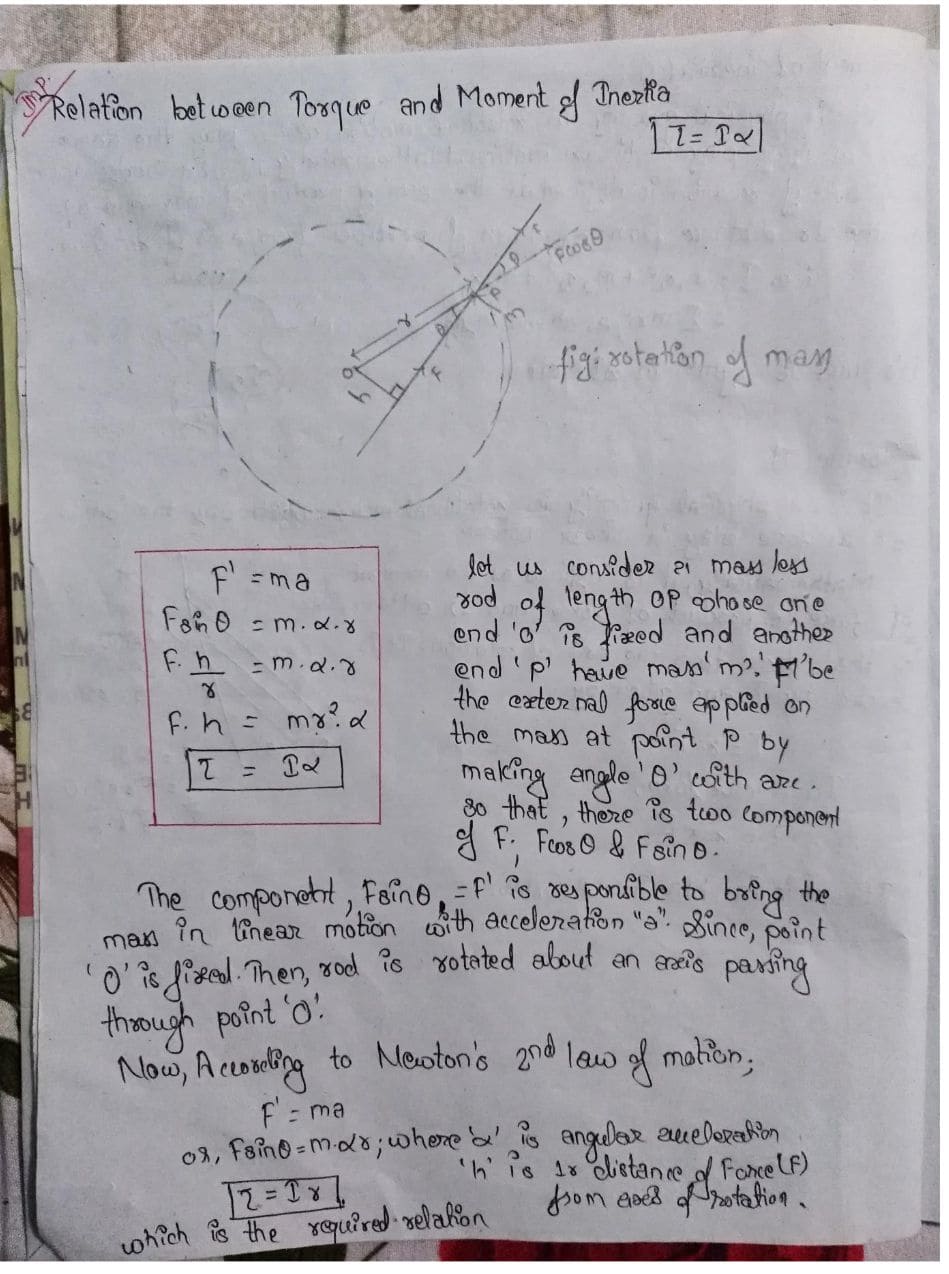 Imp.
Relation between Torque and Moment of Inertia
τ = Iα
F
θ
Fcosθ
P
m
r
θ
O
h
F
fig: rotation of mass
F' = ma
Fsinθ = m.α.r
F. h/r = m.α.r
F. h = mr². α
τ = Iα
let us consider a mass less
rod of length OP whose one
end 'O' is fixed and another
end 'P' have mass 'm'. 'F' be
the external force applied on
the mass at point P by
making angle 'θ' with arc.
so that, there is two component
of F; Fcosθ & Fsinθ.
The componetnt, Fsinθ = F' is responsible to bring the
mass in linear motion with acceleration "a". Since, point
'O' is fixed. Then, rod is rotated about an axis passing
through point 'O'.
Now, According to Newton's 2nd law of motion;
F' = ma
or, Fsinθ = m.αr; where 'α' is angular acceleration
'h' is ⊥r distance of Force (F)
τ = I γ from axis of rotation.
which is the required relation